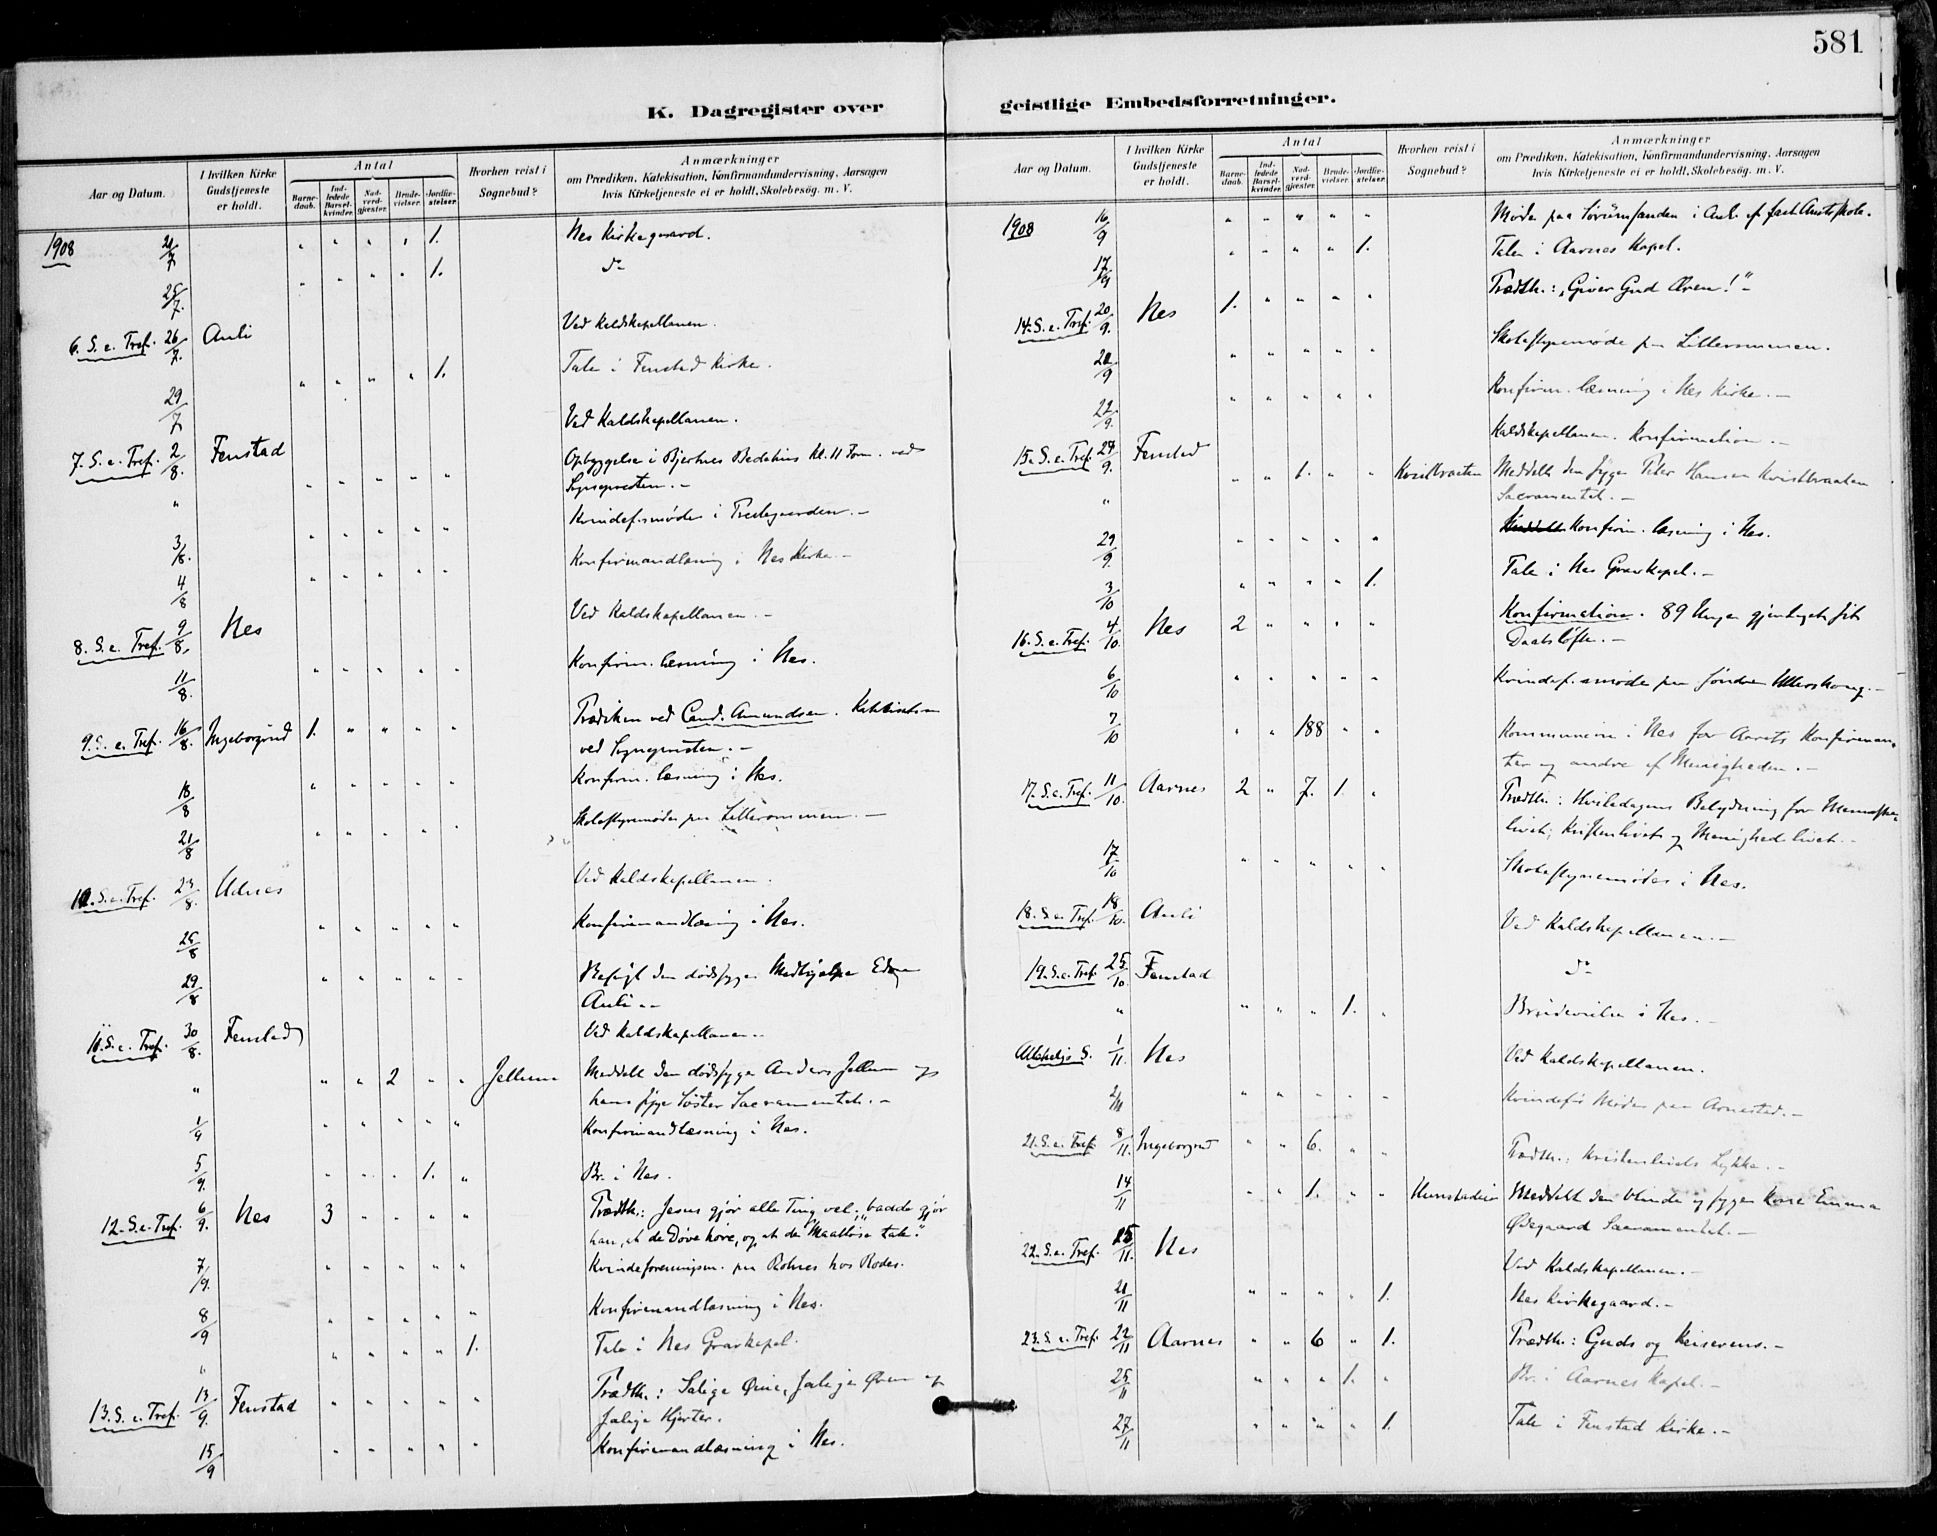 581
K. Dagregister over
geistlige Embedsforretninger.
Aar og Datum.
I hvilken Kirke Gudstjeneste er holdt.
Antal
Barne-daab.
Ind-ledede Barsel-kvinder.
Nad-verd-gjester.
Brude-vielser.
Jordfæ-stelser.
Hvorhen reist i Sognebud?
Anmærkninger
om Prædiken, Katekisation, Konfirmandundervisning, Aarsagen
hvis Kirketjeneste ei er holdt, Skolebesög. m. V.
1908 21/7 " " " " 1. Nes Kirkegaard.
25/7. " " " " 1. do
6. S. e. Tref. 26/7. Auli Ved Kaldskapellanen.
29/7 " " " " 1. Tale i Fenstad Kirke.
7. S. e. Tref. 2/8. Fenstad Ved Kaldskapellanen.
" " " " " " Opbyggelse i Bjertnes Bedehus Kl. 11 Form. ved
Sognepresten.-
3/8. " " " " " Kvindef.møde i Prestegaarden.-
4/8 " " " " " Konfirmandlæsning i Nes Kirke.-
8. S. e. Tref. 9/8. Nes Ved Kaldskapellanen.-
11/8. " " " " " Konfirm. læsning i Nes.
9. S. e. Tref. 16/8. Ingeborgrud 1. " " " " Prædiken ved Cand. Amundsen. Katekisation
ved Sognepresten.-
18/8 " " " " " Konfirm. læsning i Nes.
21/8 " " " " " Skolestyremøde paa Lillerommen.-
10. S. e. Tref. 23/8. Udnes Ved Kaldskapellanen.
25/8 " " " " " Konfirmandlæsning i Nes.
29/8 " " " " " Besøgt den dødssyge Medhjelper
Auli.-
11. S. e. Tref. 30/8. Fenstad Ved Kaldskapellanen.
" " " 2 " " Jellum Meddelt den dødssyge Anders Jellum og
hans syge Søster Sacramentet.-
1/9 " " " " " Konfirmandlæsning i Nes.
5/9. " " " 1. " Br. i Nes.
12. S. e. Tref. 6/9. Nes 3 " " " " Prædth.: Jesus gjør alle Ting vel; "baade gjør
han, at de Døve høre, og at de Maalløse tale."
7/9. " " " " " Kvindeforeningsm. paa Rolnes hos Rodes.
8/9 " " " " " Konfirmandlæsning i Nes.
" " " " " 1. Tale i Nes Gravkapel.
13. S. e. Tref. 13/9. Fenstad " " " " " Prædth.: Salige Øine, salige Øren og
salige Hjerter.
15/9 " " " " " Konfirmandlæsning i Nes.
Aar og Datum.
I hvilken Kirke Gudstjeneste er holdt.
Antal
Barne-daab.
Ind-ledede Barsel-kvinder.
Nad-verd-gjester.
Brude-vielser.
Jordfæ-stelser.
Hvorhen reist i Sognebud?
Anmærkninger
om Prædiken, Katekisation, Konfirmandundervisning, Aarsagen
hvis Kirketjeneste ei er holdt, Skolebesög. m. V.
1908 16/9 " " " " " Møde paa Sørumsanden i Anl. af Amtsskole.
17/9 " " " " 1. Tale i Aarnes Kapel.
14. S. e. Tref. 20/9. Nes 1. " " " " Prædth.: "Giver Gud Æren!"-
21/9 " " " " " Skolestyremøde paa Lillerommen.
22/9. " " " " " Konfirm. læsning i Nes Kirke.-
15. S. e. Tref. 27/9. Fenstad Kaldskapellanen. Konfirmation.-
" " " 1. " " Kvistbraaten Meddelt den syge Peter Hansen Kvistbraaten
Sacramentet.-
29/9. " " " " " Konfirm. læsning i Nes.
3/10 " " " " 1. Tale i Nes Gravkapel.-
16. S. e. Tref. 4/10. Nes 2 " " " " Konfirmation. 89 Unge gjentoget sit
Daabsløfte.-
6/10 " " " " " Kvindef.møde paa Søndre Ullershov.-
7/10 " " 188 " " Kommunion i Nes for Aarets Konfirman-
ter og andre af Menigheden.-
17. S. e. Tref. 11/10. Aarnes 2 " 7. 1. " Prædth.: Hviledagens Betydning for Menneske-
livet, Kristenlivet og Menighedslivet.-
17/10 " " " " " Skolestyremøde i Nes.
18. S. e. Tref. 18/10. Auli Ved Kaldskapellanen.-
19. S. e. Tref. 25/10. Fenstad do
" " " " 1. " Brudevielse i Nes.-
Allehelgs S. 1/11 Nes Ved Kaldskapellanen.
2/11 " " " " " Kvindefs Møde paa Arnestad.-
21. S. e. Tref. 8/11. Ingeborgrud " " 6. " " Prædth.: Kristenlivets Lykke.-
14/11 " " 1. " " Hunstadeie Meddelt den blinde og syge Kone Emma
Ødegaard Sacramentet.-
22. S. e. Tref. 15/11. Nes Ved Kaldskapellanen.-
21/11 " " " " 1. Nes Kirkegaard.-
23. S. e. Tref. 22/11 Aarnes " " 6 " 1. Prædth.: Guds og Keiserens.-
25/11 " " " 1. " Br. i Aarnes Kapel.-
27/11 " " " " 1. Tale i Fenstad Kirke.-